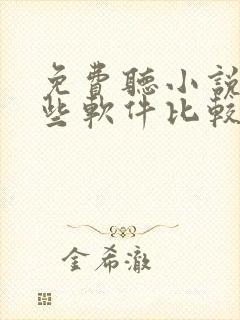 免費聽小說
些軟件比較
金希澈